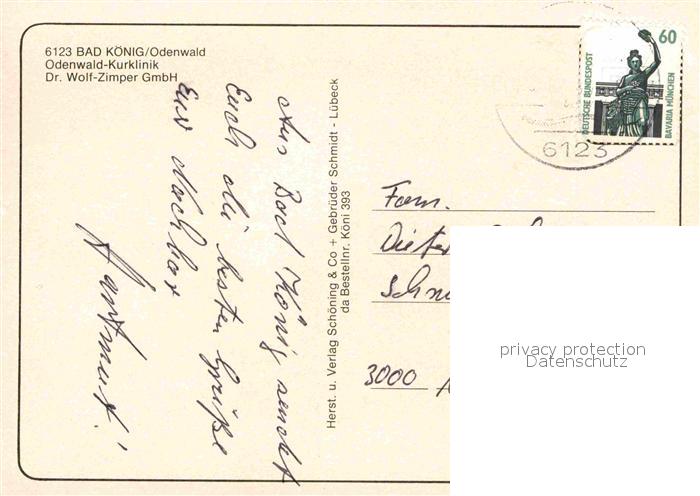 6123 BAD KÖNIG/Odenwald
Odenwald-Kurklinik
Dr. Wolf-Zimper GmbH
Aus Bad König sendet
Euch die besten Grüße
Euer Nachbar
Hartmut!
Herst. u. Verlag Schöning & Co + Gebrüder Schmidt - Lübeck
da Bestellnr. Köni 393
60
DEUTSCHE BUNDESPOST
BAVARIA MÜNCHEN
6123
Fam.
Dieter
3000
privacy protection
Datenschutz